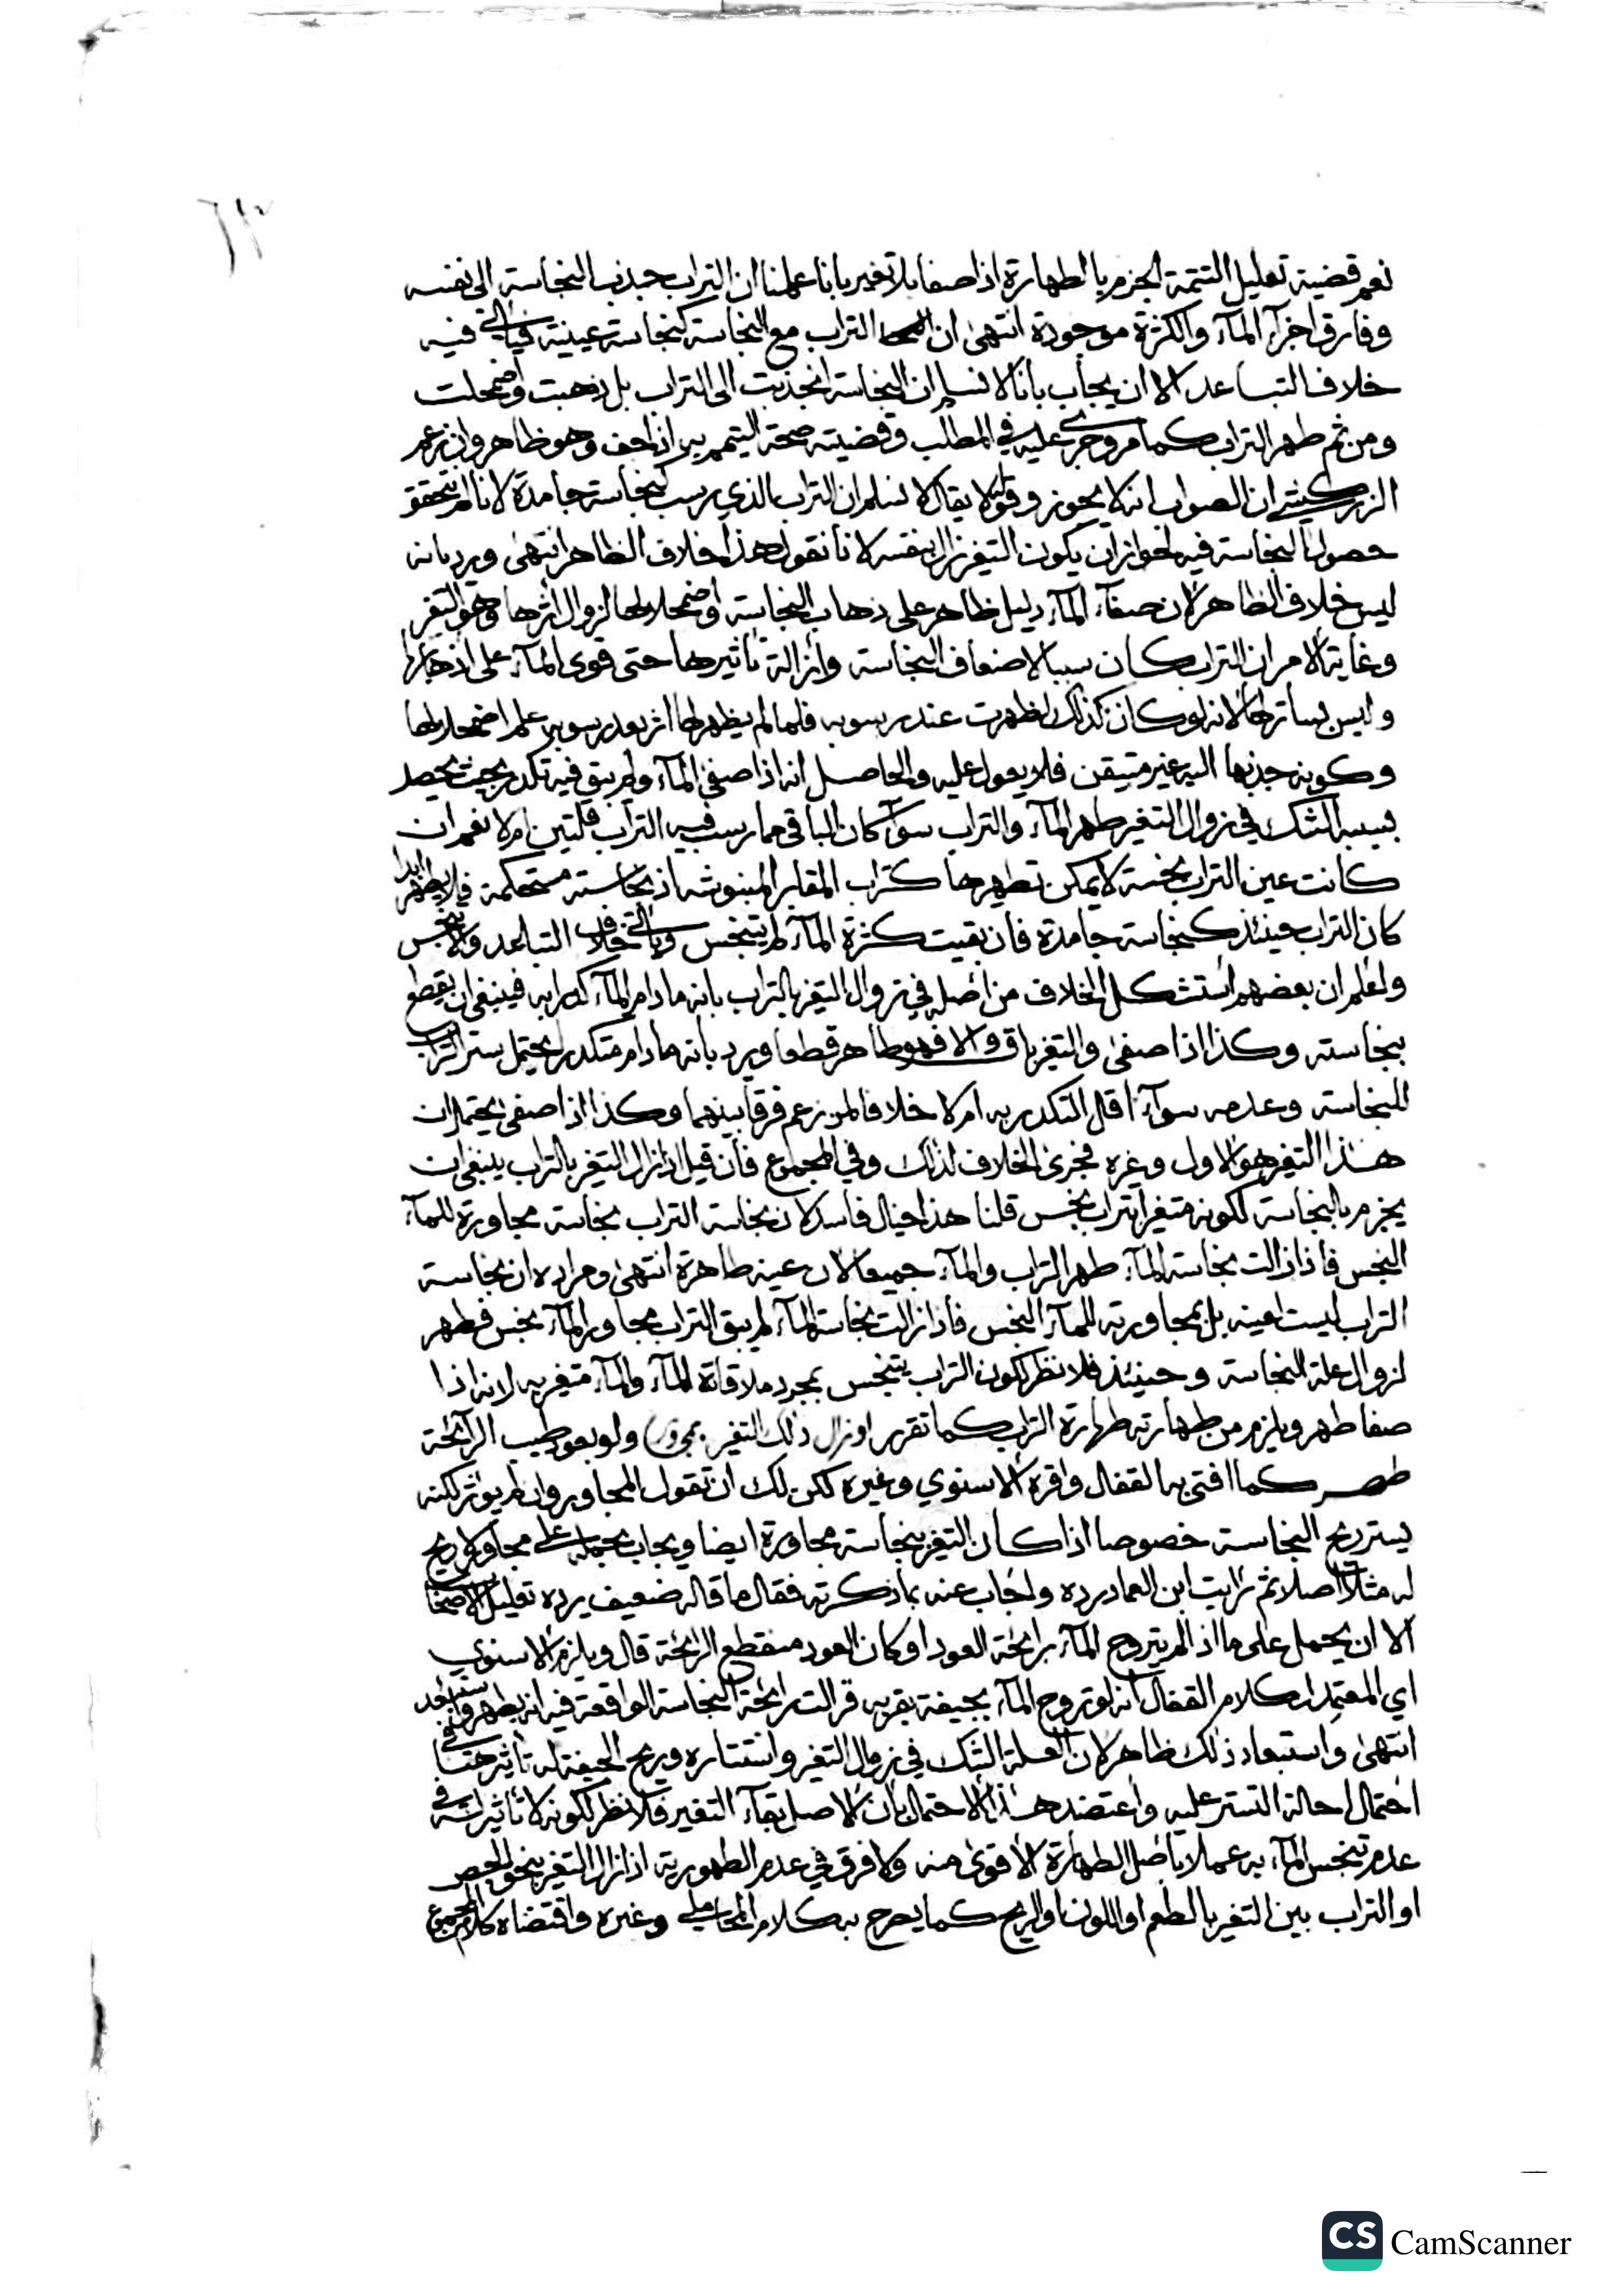 ٦٣
نعم قضية تعليل التتمة الجزم بالطهارة اذا صفا بلا تغير بانا علمنا ان التراب جذب النجاسة الى نفسه
وفارق اجزآء المآء والكثرة موجودة انتهى ان التراب مع النجاسة كنجاسة عينية فياتي فيه
خلاف التباعد الا ان يجاب بانا لا نسلم ان النجاسة انجذبت الى التراب بل ذهبت واضمحلت
ومن ثم طهر التراب كما مر وجرى عليه في المطلب وقضيته صحة التيمم به اذا جف وهو ظاهر وان زعم
الزركشي ان الصواب انه لا يجوز وقوله لا يقال لا نسلم ان التراب الذي رسب كنجاسة جامدة لانا لم نتحقق
حصول النجاسة فيه لجواز ان يكون التغير زال بنفسه لانا نقول هذا خلاف الظاهر انتهى ويرد بانه
ليس خلاف الظاهر لان صفآء المآء دليل ظاهر على ذهاب النجاسة واضمحلالها لزوال اثرها وهو التغير
وغاية الامر ان التراب كان سببا لاضعاف النجاسة وازالة تاثيرها حتى قوى المآء على اذهابها
وليس بساتر لها لانه لو كان كذلك لظهرت عند رسوبه فلما لم يظهر لها اثر بعد رسوبه علم اضمحلالها
وكونه جذبها اليه غير متيقن فلا يعول عليه والحاصل انه اذا صفى المآء ولم يبق فيه تكدر بحيث يحصل
بسببه الشك في زوال التغير طهر المآء والتراب سوآء كان الباقي مما رسب فيه التراب قلتين ام لا نعم ان
كانت عين التراب نجسة لا يمكن تطهيرها كتراب المقابر المنبوشة اذ نجاسته مستحكمة فلا يطهر ابدا
كان التراب حينئذ كنجاسة جامدة فان بقيت كثرة المآء لم يتنجس وياتي خلاف التباعد والا تنجس
واعلم ان بعضهم استشكل الخلاف من اصله في زوال التغير بالتراب بانه ما دام المآء كدرا به فينبغي ان يقطع
بنجاسته وكذا اذا صفى والتغير باق والا فهو طاهر قطعا ويرد بانه ما دام متكدرا يحتمل ستر التراب
للنجاسة وعدمه سوآء اقل التكدر به ام لا خلافا لمن زعم فرقا بينهما وكذا اذا صفى يحتمل ان
هذا التغير هو الاول وغيره فجرى الخلاف لذلك وفي المجموع فان قيل اذا زال التغير بالتراب ينبغي ان
يجزم بالنجاسة لكونه متغيرا بتراب نجس قلنا هذا خيال فاسد لان نجاسة التراب نجاسة مجاورة للمآء
النجس فاذا زالت نجاسة المآء طهر التراب والمآء جميعا لان عينه طاهرة انتهى ومراده ان نجاسة
التراب ليست لعينه بل لمجاورته للمآء النجس فاذا زالت نجاسة المآء لم يبق التراب مجاور المآء نجس فطهر
لزوال علة النجاسة وحينئذ فلا نظر لكون التراب يتنجس بمجرد ملاقاة المآء والمآء متغير به لانه اذا
صفا طهر ويلزم من طهارته طهارة التراب كما تقرر او زال ذلك التغير بمجاور ولو بعود طيب الرآئحة
طهر كما افتى به القفال واقره الاسنوي وغيره لكن لك ان تقول المجاور وان لم يؤثر لكنه
يستر ريح النجاسة خصوصا اذا كان التغير بنجاسة مجاورة ايضا ويجاب بحمله على مجاور لا ريح
له مثلا اصلا ثم رايت ابن العماد رده واجاب عنه بما ذكرته فقال ما قاله ضعيف يرده تعليل الاصحاب
الا ان يحمل على ما اذا لم يتروح المآء برائحة العود او كان العود منقطع الرائحة قال ويلزم الاسنوي
اي المعتمد لكلام القفال انه لو تروح المآء بجيفة بقربه فزالت رائحة النجاسة الواقعة فيه انه يطهر وانه بعيد
انتهى واستبعاد ذلك ظاهر لان العلة الشك في زوال التغير واستتاره وريح الجيفة له تاثير هنا في
احتمال احالة التستر عليه واعتضد هذا الاحتمال بان الاصل بقآء التغير فلا نظر لكونه لا تاثير له في
عدم تنجس المآء به عملا باصل الطهارة الاقوى منه ولا فرق في عدم الطهورية اذا زال التغير بنحو الجص
او التراب بين التغير بالطعم او اللون او الريح كما يصرح به كلام المحاملي وغيره واقتضاه كلام المجموع
CS CamScanner